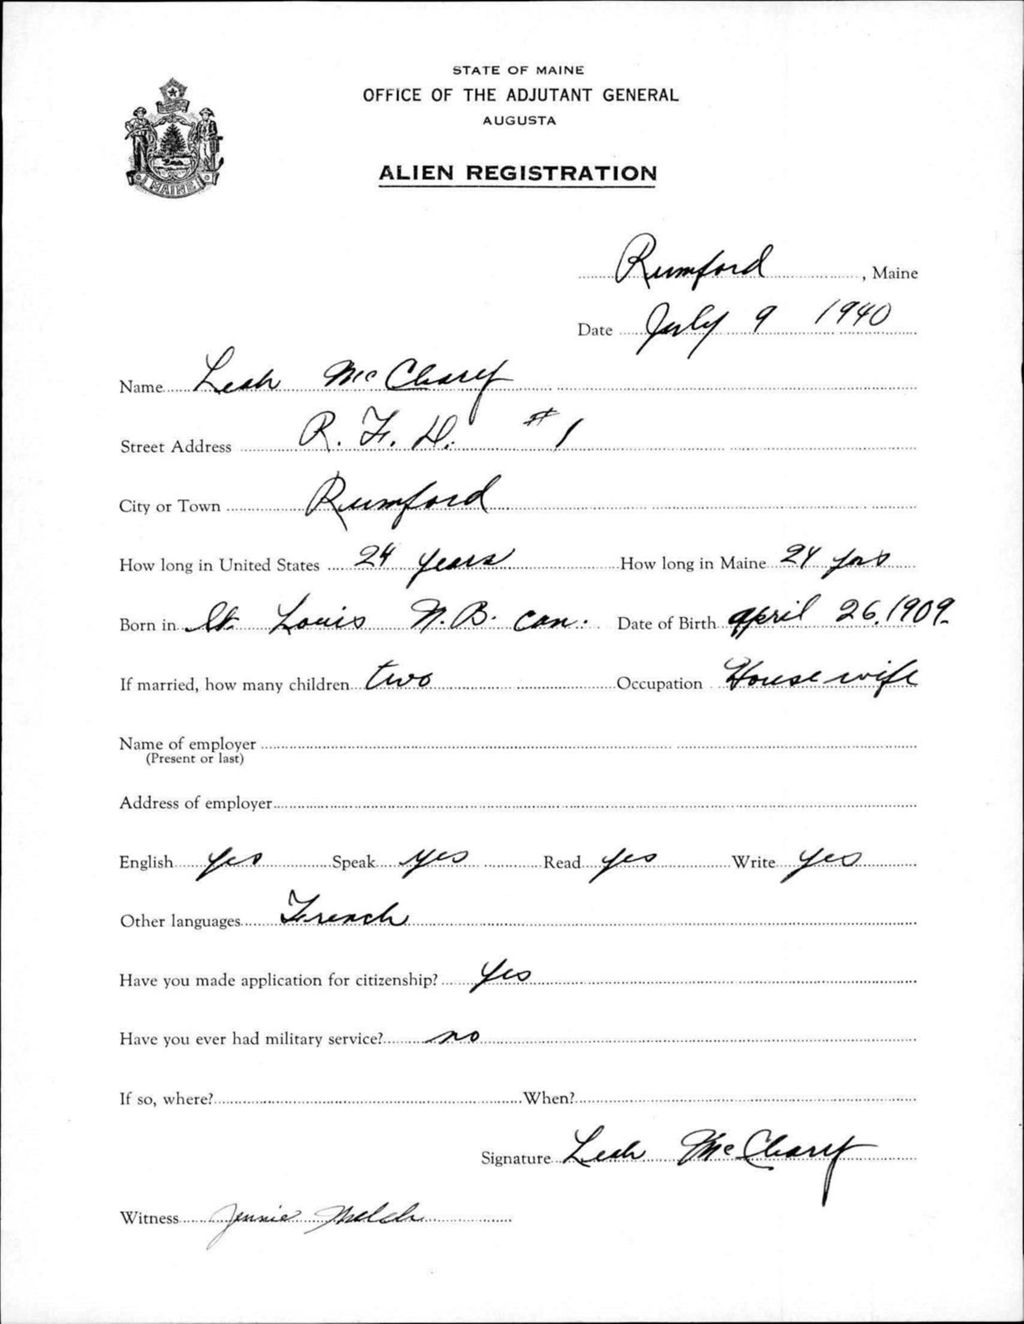 STATE OF MAINE
OFFICE OF THE ADJUTANT GENERAL
AUGUSTA
ALIEN REGISTRATION
MAINE
Rumford, Maine
Date July 9 1940
Name Leah McCleary
Street Address R. F. D. #1
City or Town Rumford
How long in United States 24 years How long in Maine 24 yrs
Born in St. Louis N.B. Can. Date of Birth April 26, 1909
If married, how many children two Occupation House wife
Name of employer
(Present or last)
Address of employer
English yes Speak yes Read yes Write yes
Other languages French
Have you made application for citizenship? Yes
Have you ever had military service? no
If so, where? When?
Signature Leah McCleary
Witness Jennie